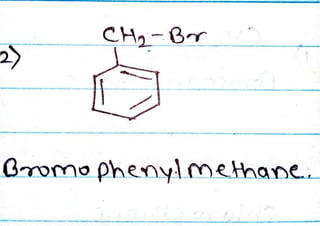 CH₂-Br
2)
Bromophenylmethane.